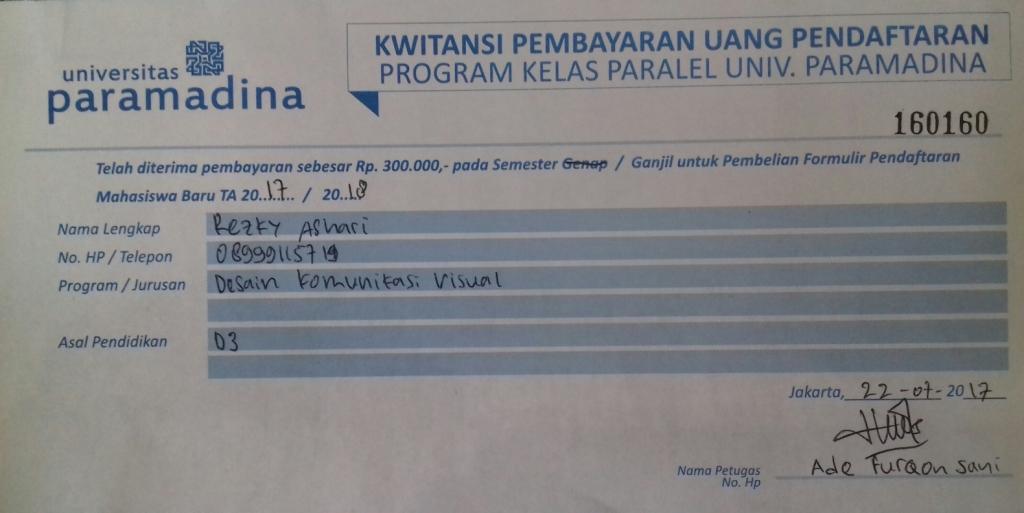 universitas
paramadina
KWITANSI PEMBAYARAN UANG PENDAFTARAN
PROGRAM KELAS PARALEL UNIV. PARAMADINA
160160
Telah diterima pembayaran sebesar Rp. 300.000,- pada Semester Genap / Ganjil untuk Pembelian Formulir Pendaftaran
Mahasiswa Baru TA 20..17.. / 20..18
Nama Lengkap Rezky Ashari
No. HP / Telepon 08999115719
Program / Jurusan Desain Komunikasi Visual
Asal Pendidikan D3
Jakarta, 22-07-2017
Nama Petugas Ade Furqon sani
No. Hp